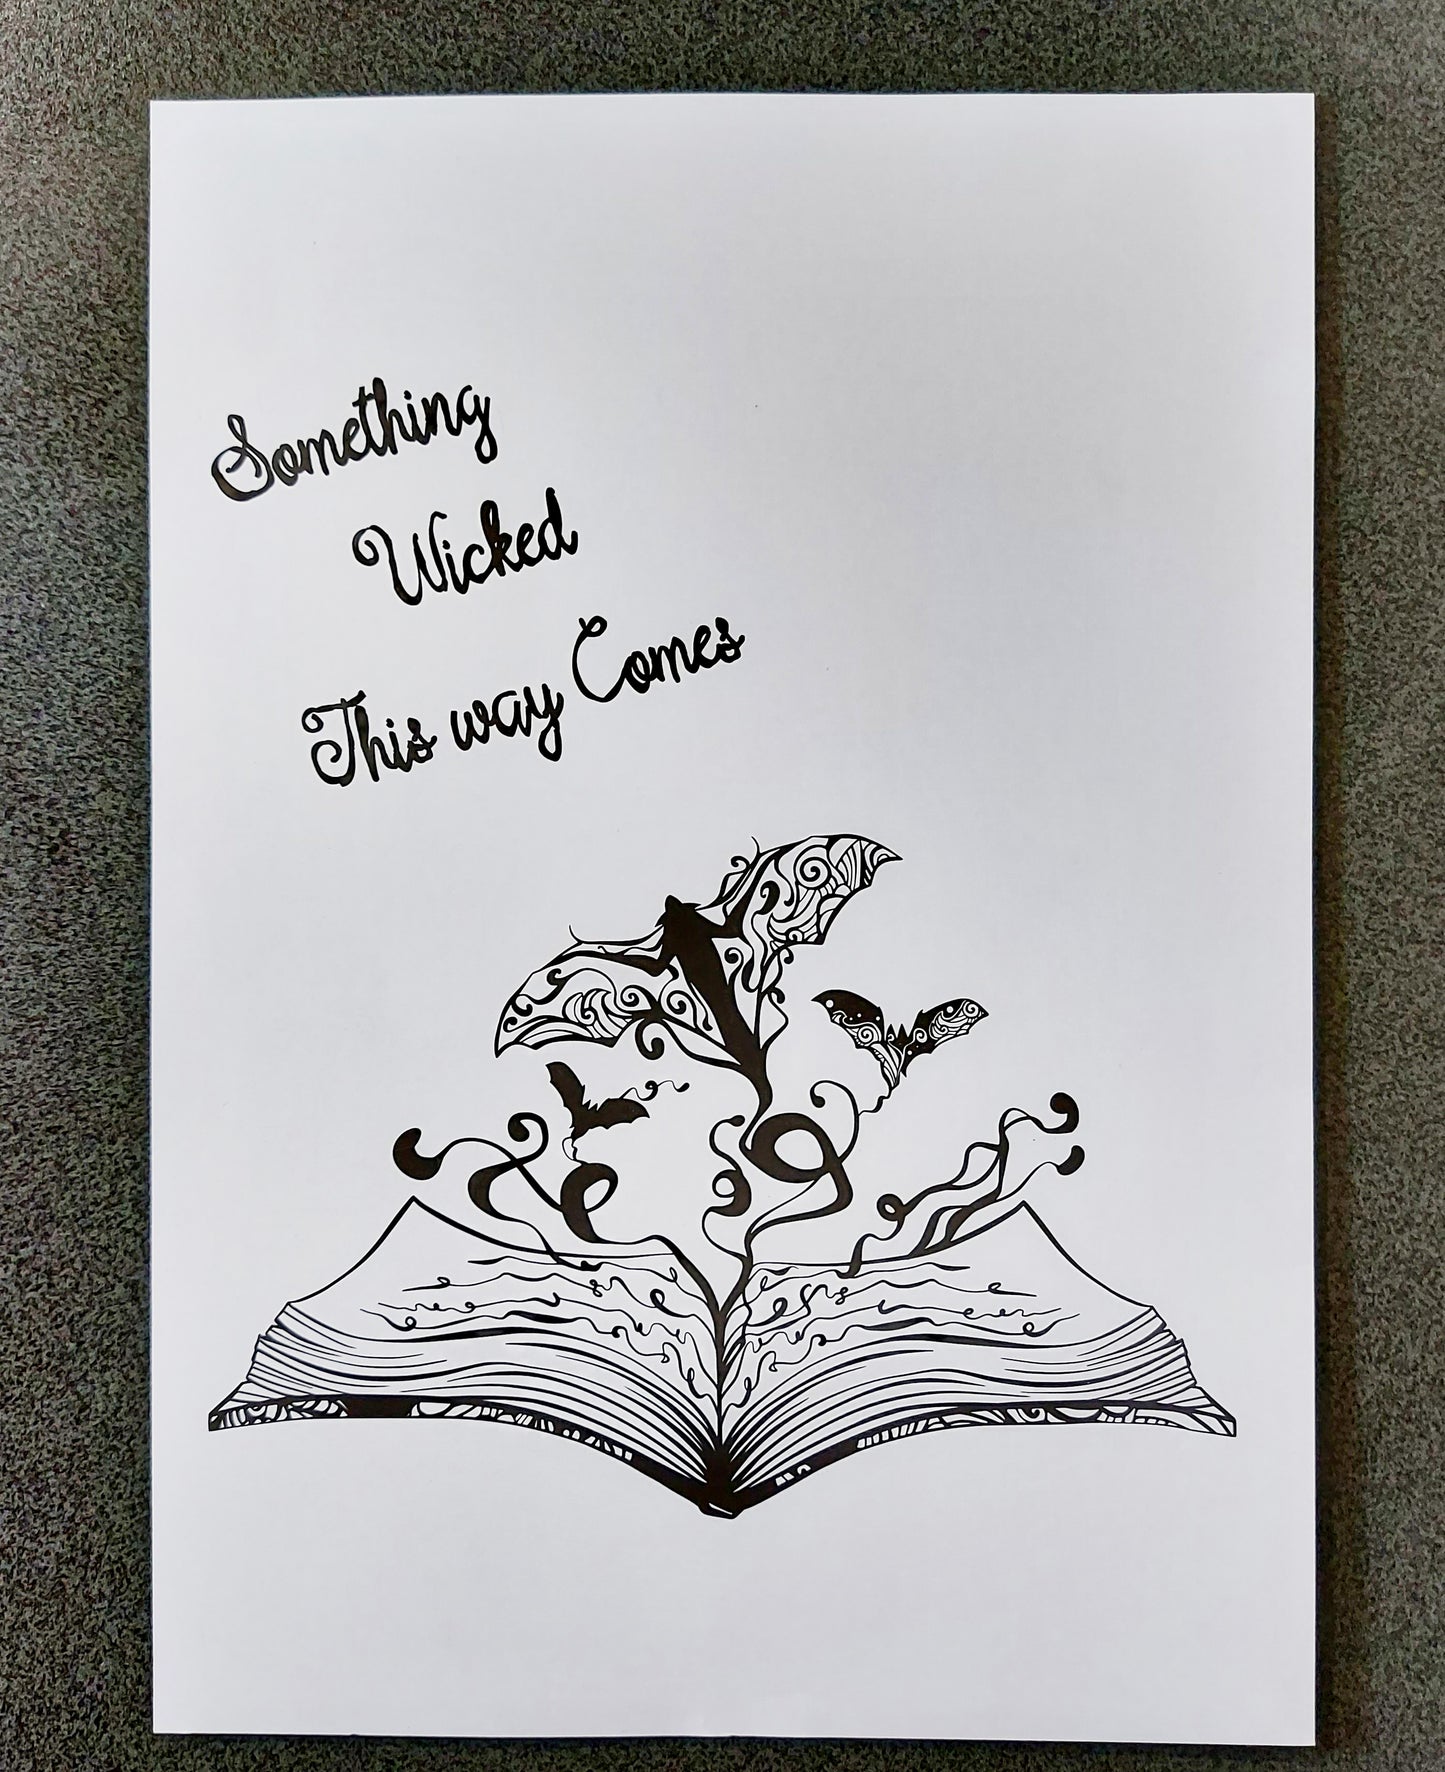 Something
Wicked
This way Comes